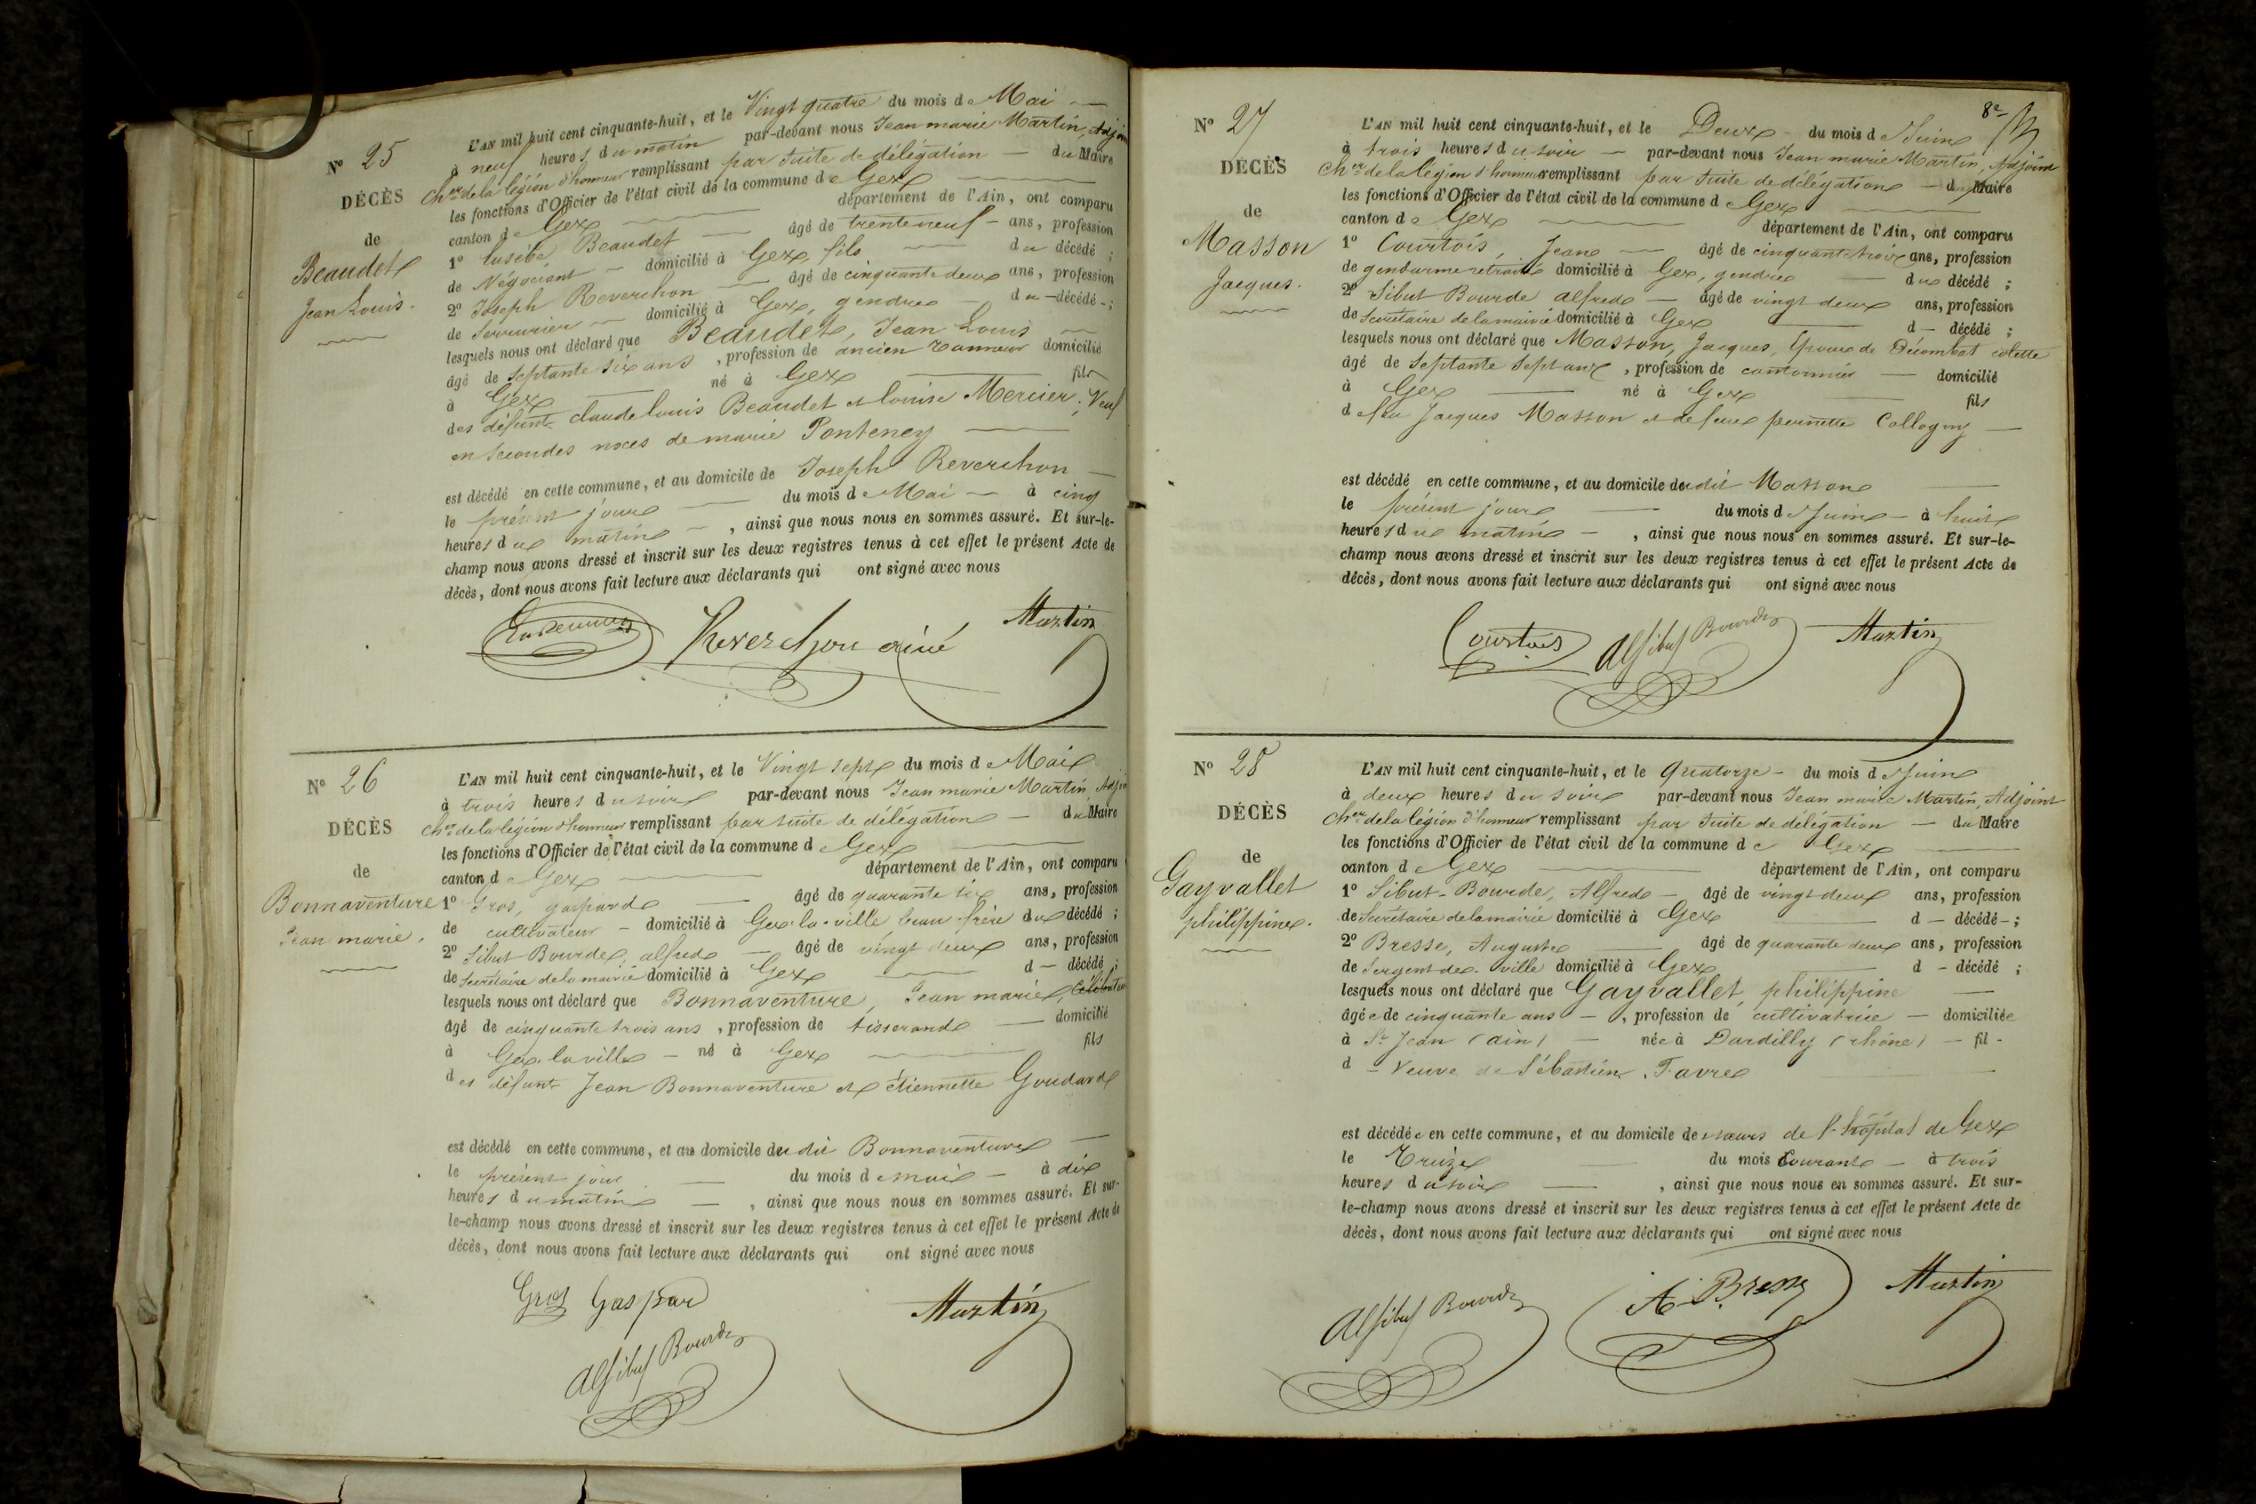 N° 25
DÉCÈS
de
Beaudet
Jean Louis.
L'AN mil huit cent cinquante-huit, et le Vingt quatre du mois de Mai
à neuf heures du matin par-devant nous Jean marie Martin, Adjoint
Cher de la légion d'honneur remplissant par suite de délégation — du Maire
les fonctions d'Officier de l'état civil de la commune de Gex
canton de Gex département de l'Ain, ont comparu
1° Eusèbe Beaudet âgé de trente neuf ans, profession
de Négociant domicilié à Gex, fils du décédé ;
2° Joseph Reverchon âgé de cinquante deux ans, profession
de Serrurier domicilié à Gex, gendre du décédé ;
lesquels nous ont déclaré que Beaudet, Jean Louis
âgé de septante six ans, profession de ancien tanneur domicilié
à Gex né à Gex fils
des défunts Claude Louis Beaudet et Louise Mercier ; Veuf
en secondes noces de marie Ponteney
est décédé en cette commune, et au domicile de Joseph Reverchon
le présent jour du mois de Mai à cinq
heures du matin, ainsi que nous nous en sommes assuré. Et sur-le-
champ nous avons dressé et inscrit sur les deux registres tenus à cet effet le présent Acte de
décès, dont nous avons fait lecture aux déclarants qui ont signé avec nous
Reverchon ainé Martin
N° 26
DÉCÈS
de
Bonnaventure
Jean marie.
L'AN mil huit cent cinquante-huit, et le Vingt sept du mois de Mai
à trois heures du soir par-devant nous Jean marie Martin, Adjoint
Cher de la légion d'honneur remplissant par suite de délégation — du Maire
les fonctions d'Officier de l'état civil de la commune de Gex
canton de Gex département de l'Ain, ont comparu
1° Gros, gaspard âgé de quarante six ans, profession
de cultivateur domicilié à Gex-la-ville beau frère du décédé ;
2° Sibut Bourde, alfred âgé de vingt deux ans, profession
de Secrétaire de la mairie domicilié à Gex d — décédé ;
lesquels nous ont déclaré que Bonnaventure, Jean marie, Célibataire
âgé de cinquante trois ans, profession de tisserand domicilié
à Gex-la-ville né à Gex fils
des défunts Jean Bonnaventure et étiennette Goudard
est décédé en cette commune, et au domicile du dit Bonnaventure
le présent jour du mois de mai à dix
heures du matin, ainsi que nous nous en sommes assuré. Et sur-
le-champ nous avons dressé et inscrit sur les deux registres tenus à cet effet le présent Acte de
décès, dont nous avons fait lecture aux déclarants qui ont signé avec nous
Gros Gaspar Martin
Al Sibut Bourde
8e
N° 27
DÉCÈS
de
Masson
Jacques.
L'AN mil huit cent cinquante-huit, et le Deux du mois de Juin
à trois heures du soir — par-devant nous Jean marie Martin, Adjoint
Cher de la légion d'honneur remplissant par suite de délégation — du Maire
les fonctions d'Officier de l'état civil de la commune de Gex
canton de Gex département de l'Ain, ont comparu
1° Courtois, Jean âgé de cinquante trois ans, profession
de gendarme retraité domicilié à Gex, gendre du décédé ;
2° Sibut Bourde alfred — âgé de vingt deux ans, profession
de Secrétaire de la mairie domicilié à Gex d — décédé ;
lesquels nous ont déclaré que Masson, Jacques, époux de Décombat colette
âgé de Septante Sept ans, profession de cantonnier domicilié
à Gex né à Gex fils
de feu Jacques Masson et de feue pernette Collogny
est décédé en cette commune, et au domicile du dit Masson
le présent jour du mois de Juin — à huit
heures du matin — , ainsi que nous nous en sommes assuré. Et sur-le-
champ nous avons dressé et inscrit sur les deux registres tenus à cet effet le présent Acte de
décès, dont nous avons fait lecture aux déclarants qui ont signé avec nous
Courtois Al Sibut Bourde Martin
N° 28
DÉCÈS
de
Gayvallet
philippine.
L'AN mil huit cent cinquante-huit, et le quatorze du mois de Juin
à deux heures du soir par-devant nous Jean marie Martin, Adjoint
Cher de la légion d'honneur remplissant par suite de délégation — du Maire
les fonctions d'Officier de l'état civil de la commune de Gex
canton de Gex département de l'Ain, ont comparu
1° Sibut-Bourde, Alfred — âgé de vingt deux ans, profession
de Secrétaire de la mairie domicilié à Gex d — décédé — ;
2° Bresse, Auguste âgé de quarante deux ans, profession
de Sergent de ville domicilié à Gex d — décédé ;
lesquels nous ont déclaré que Gayvallet, philippine
âgée de cinquante ans — , profession de cultivatrice — domiciliée
à St Jean (ain) — née à Dardilly (rhône) — fil -
d — Veuve de Sébastien Favre
est décédée en cette commune, et au domicile des sœurs de l'hôpital de Gex
le Treize du mois Courant — à trois
heures du soir , ainsi que nous nous en sommes assuré. Et sur-
le-champ nous avons dressé et inscrit sur les deux registres tenus à cet effet le présent Acte de
décès, dont nous avons fait lecture aux déclarants qui ont signé avec nous
Al Sibut Bourde A. Bresse Martin